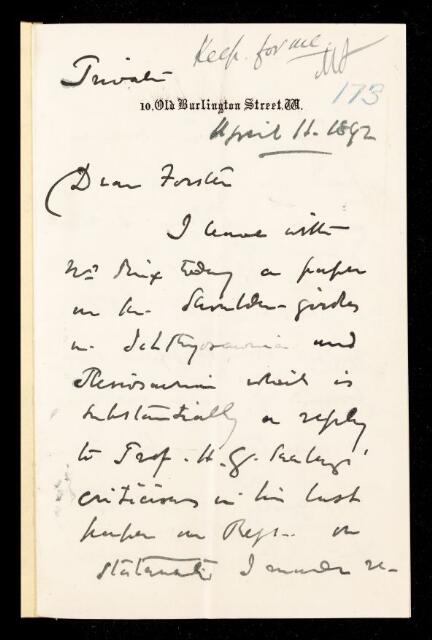 Keep for me
MF
173
Private
10, Old Burlington Street, W.
April 11. 1892
Dear Foster
I leave with
Mr Rix today a paper
on the Shoulder-girdle
in Ichthyosauria and
Plesiosauria which is
substantially a reply
to Prof. H. G. Seeley's
criticisms in his last
paper on Rept. on
statements I made re-